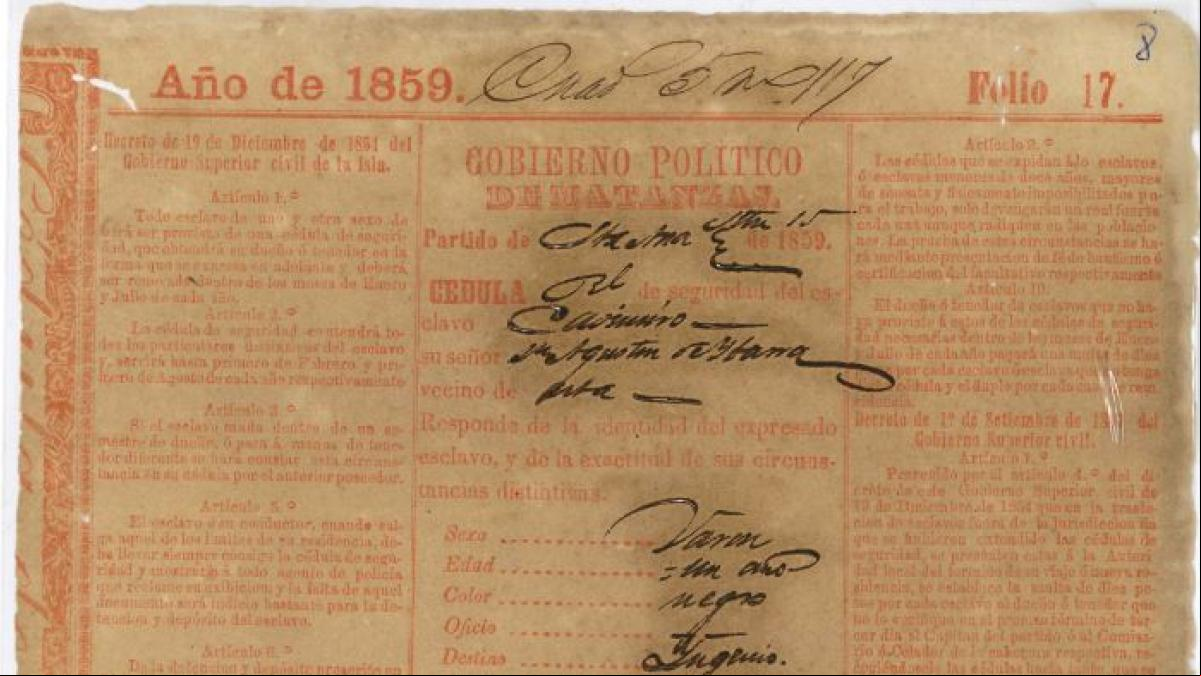 8
Año de 1859. no. 117
Folio 17.
Decreto de 19 de Diciembre de 1854 del
Gobierno Superior civil de la Isla.
Artículo 1.°
Todo esclavo de uno y otro sexo de
será ser provisto de una cédula de seguri-
dad, que obtendrá su dueño ó tenedor en la
forma que se espresa en adelante y deberá
ser renovada dentro de los meses de Enero
y Julio de cada año.
Artículo 2.°
La cédula de seguridad contendrá to-
dos los particulares distintivos del esclavo
y servirá hasta primero de Febrero y pri-
mero de Agosto de cada año respectivamente
Artículo 3.°
Si el esclavo muda dentro de un se-
mestre de dueño, ó pasa á manos de tene-
dor diferente se hará constar esta circuns-
tancia en su cédula por el anterior poseedor.
Artículo 5.°
El esclavo ó su conductor, cuando sal-
ga aquel de los límites de su residencia, de-
be llevar siempre consigo la cédula de segu-
ridad y mostrarla á todo agente de policía
que reclame su exhibicion y la falta de aquel
documento será indicio bastante para la de-
tencion y depósito del esclavo.
Artículo 6.°
De la detencion y depósito prescrito en
GOBIERNO POLITICO
DE MATANZAS.
Partido de Sta Ana 15 de 1859.
CEDULA de seguridad del es-
clavo Casimiro
su señor Dn Agustin de Ibarra
vecino de esta
Responde de la identidad del expresado
esclavo, y de la exactitud de sus circuns-
tancias distintivas.
Sexo Varon
Edad un año
Color negro
Oficio
Destino Ingenio.
Artículo 9.°
Las cédulas que se expidan á lo esclavos,
ó esclavas menores de doce años, mayores
de sesenta y físicamente imposibilitados pa-
ra el trabajo, solo devengarán un real fuerte
cada una aunque radiquen en las poblacio-
nes. La prueba de estas circunstancias se ha-
rá mediante presentacion de fé de bautismo ó
certificacion del facultativo respectivamente
Artículo 10.
El dueño ó tenedor de esclavos que no ha-
ya provisto á estos de las cédulas de seguri-
dad necesarias dentro de los meses de Enero
y Julio de cada año pagará una multa de dos
por cada esclavo ó esclava que no tenga
cédula y el duplo por cada caso de rein-
cidencia.
Decreto de 1° de Setiembre de del
Gobierno Superior civil.
Artículo 1.°
Prevenido por el artículo 4.° del de-
creto de este Gobierno Superior civil de
19 de Diciembre de 1854 que en la trasla-
cion de esclavos fuera de la jurisdiccion en
que se hubieren extendido las cédulas de
seguridad, se presenten estas á la Autori-
dad local del término de su viaje ó nueva re-
sidencia, se establece la multa de diez pe-
sos por cada esclavo al dueño ó tenedor que
no lo verifique en el preciso término de ter-
cer dia al Capitan del partido ó al Comisa-
rio ó Celador de la cabecera respectiva, re-